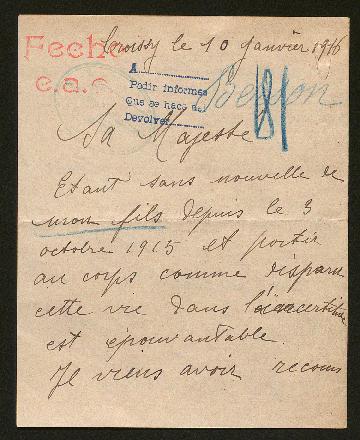 Fecho
Croissy le 10 janvier 1916
e.a.e
A
Pedir informes
Que se hace de
Devolver
81
Sa Majesté
Etant sans nouvelle de
mon fils depuis le 3
octobre 1915 et portér
au corps comme disparu
cette vie dans l'incertitude
est épouvantable.
Je viens avoir recours